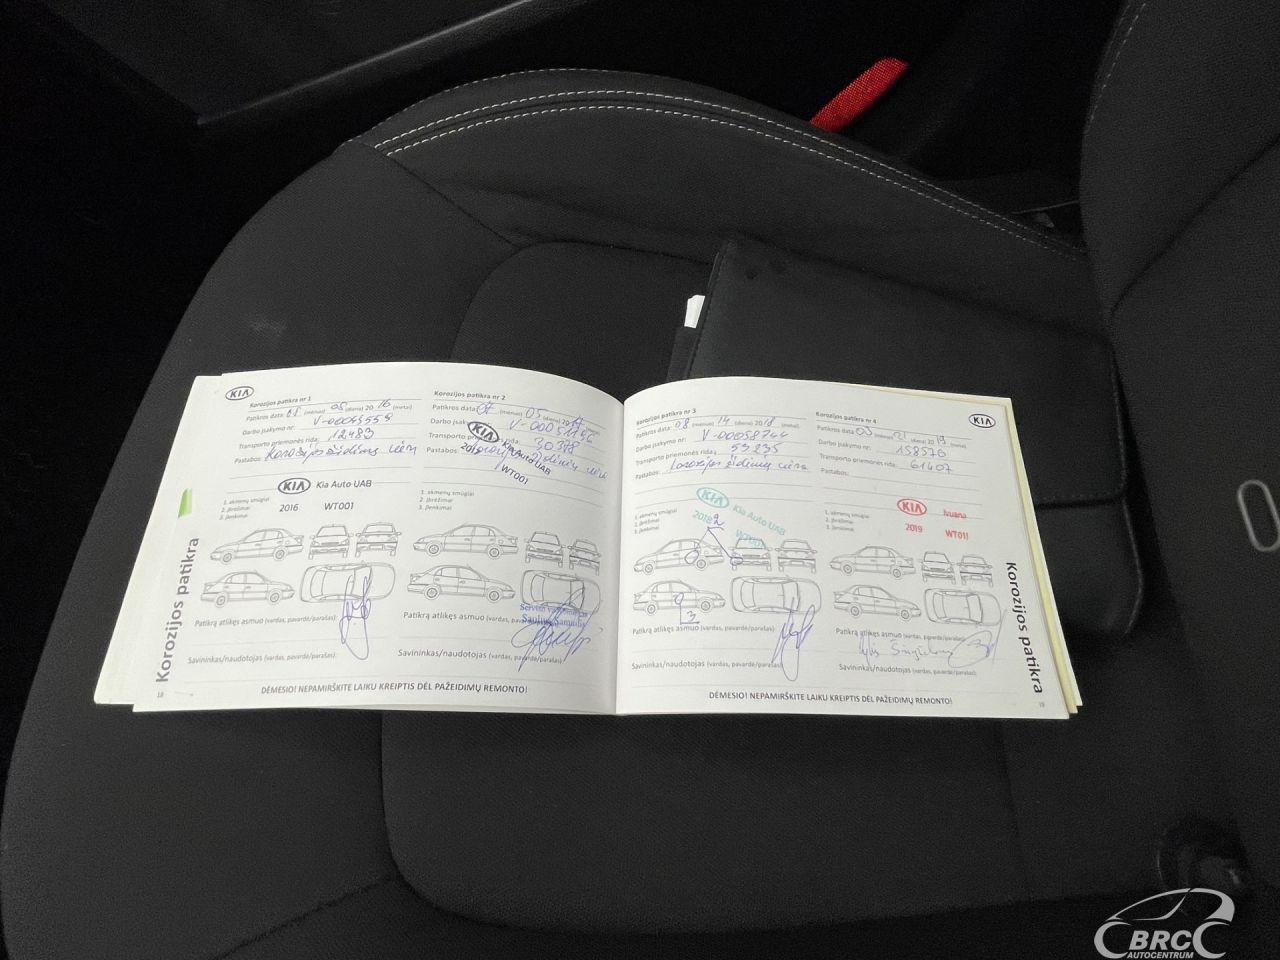 KIA
Korozijos patikra nr 1
Patikros data: 01 (mėnuo) 05 (diena) 2016 (metai)
Darbo įsakymo nr: V-00043559
Transporto priemonės rida: 12483
Pastabos:
KIA Kia Auto UAB
2016 WT001
1. akmenų smūgiai
2. įbrėžimai
3. įlenkimai
Patikrą atlikęs asmuo (vardas, pavardė/parašas):
Savininkas/naudotojas (vardas, pavardė/parašas):
Korozijos patikra nr 2
Patikros data: 07 (mėnuo) 05 (diena) 2017
Darbo įsakymo nr:
Transporto priemonės rida: 30378
Pastabos:
KIA Kia Auto UAB
WT001
1. akmenų smūgiai
2. įbrėžimai
3. įlenkimai
Patikrą atlikęs asmuo (vardas, pavardė/parašas):
Savininkas/naudotojas (vardas, pavardė/parašas):
Korozijos patikra
18
DĖMESIO! NEPAMIRŠKITE LAIKU KREIPTIS DĖL PAŽEIDIMŲ REMONTO!
Korozijos patikra nr 3
Patikros data: 08 (mėnuo) 14 (diena) 2018 (metai)
Darbo įsakymo nr: V-00058744
Transporto priemonės rida: 53235
Pastabos:
KIA Kia Auto UAB
2018
1. akmenų smūgiai
2. įbrėžimai
3. įlenkimai
2
3
Patikrą atlikęs asmuo (vardas, pavardė/parašas):
Savininkas/naudotojas (vardas, pavardė/parašas):
Korozijos patikra nr 4
KIA
Patikros data (mėnuo) 21 (diena) 2019 (metai)
Darbo įsakymo nr: 158576
Transporto priemonės rida: 61407
Pastabos:
KIA Ivuana
2019 WT011
1. akmenų smūgiai
2. įbrėžimai
3. įlenkimai
Patikrą atlikęs asmuo (vardas, pavardė/parašas):
Savininkas/naudotojas (vardas, pavardė/parašas):
Korozijos patikra
DĖMESIO! NEPAMIRŠKITE LAIKU KREIPTIS DĖL PAŽEIDIMŲ REMONTO!
19
BRC
AUTOCENTRUM